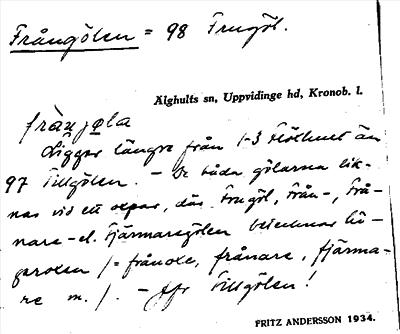 Frångölen = 98 Frugöl.
Älghults sn, Uppvidinge hd, Kronob. l.
frånjøla
Ligger längre från 1-3 Flöthult än
97 Tillgölen. — De båda gölarna lik-
nas vid ett oxpar, där Frugöl, Från-, Frå-
nare- el. Fjärmaregölen betecknar
/= frånoxe, frånare, fjärma-
re m. /. — Jfr Tillgölen!
FRITZ ANDERSSON 1934.